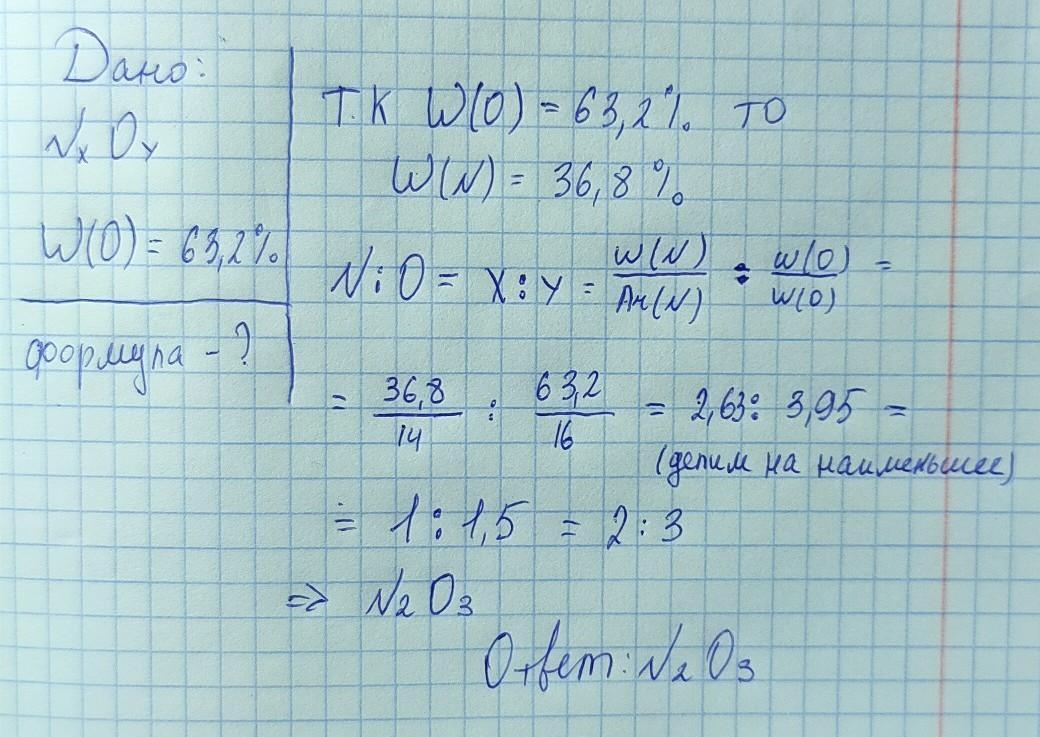 Дано:
NxOy
W(O) = 63,2%
формула - ?
Т.К W(O) = 63,2% то
W(N) = 36,8%
N:O = X:Y = W(N)/Ar(N) : W(O)/W(O) =
= 36,8/14 : 63,2/16 = 2,63: 3,95 =
(делим на наименьшее)
= 1:1,5 = 2:3
=> N2O3
Ответ: N2O3